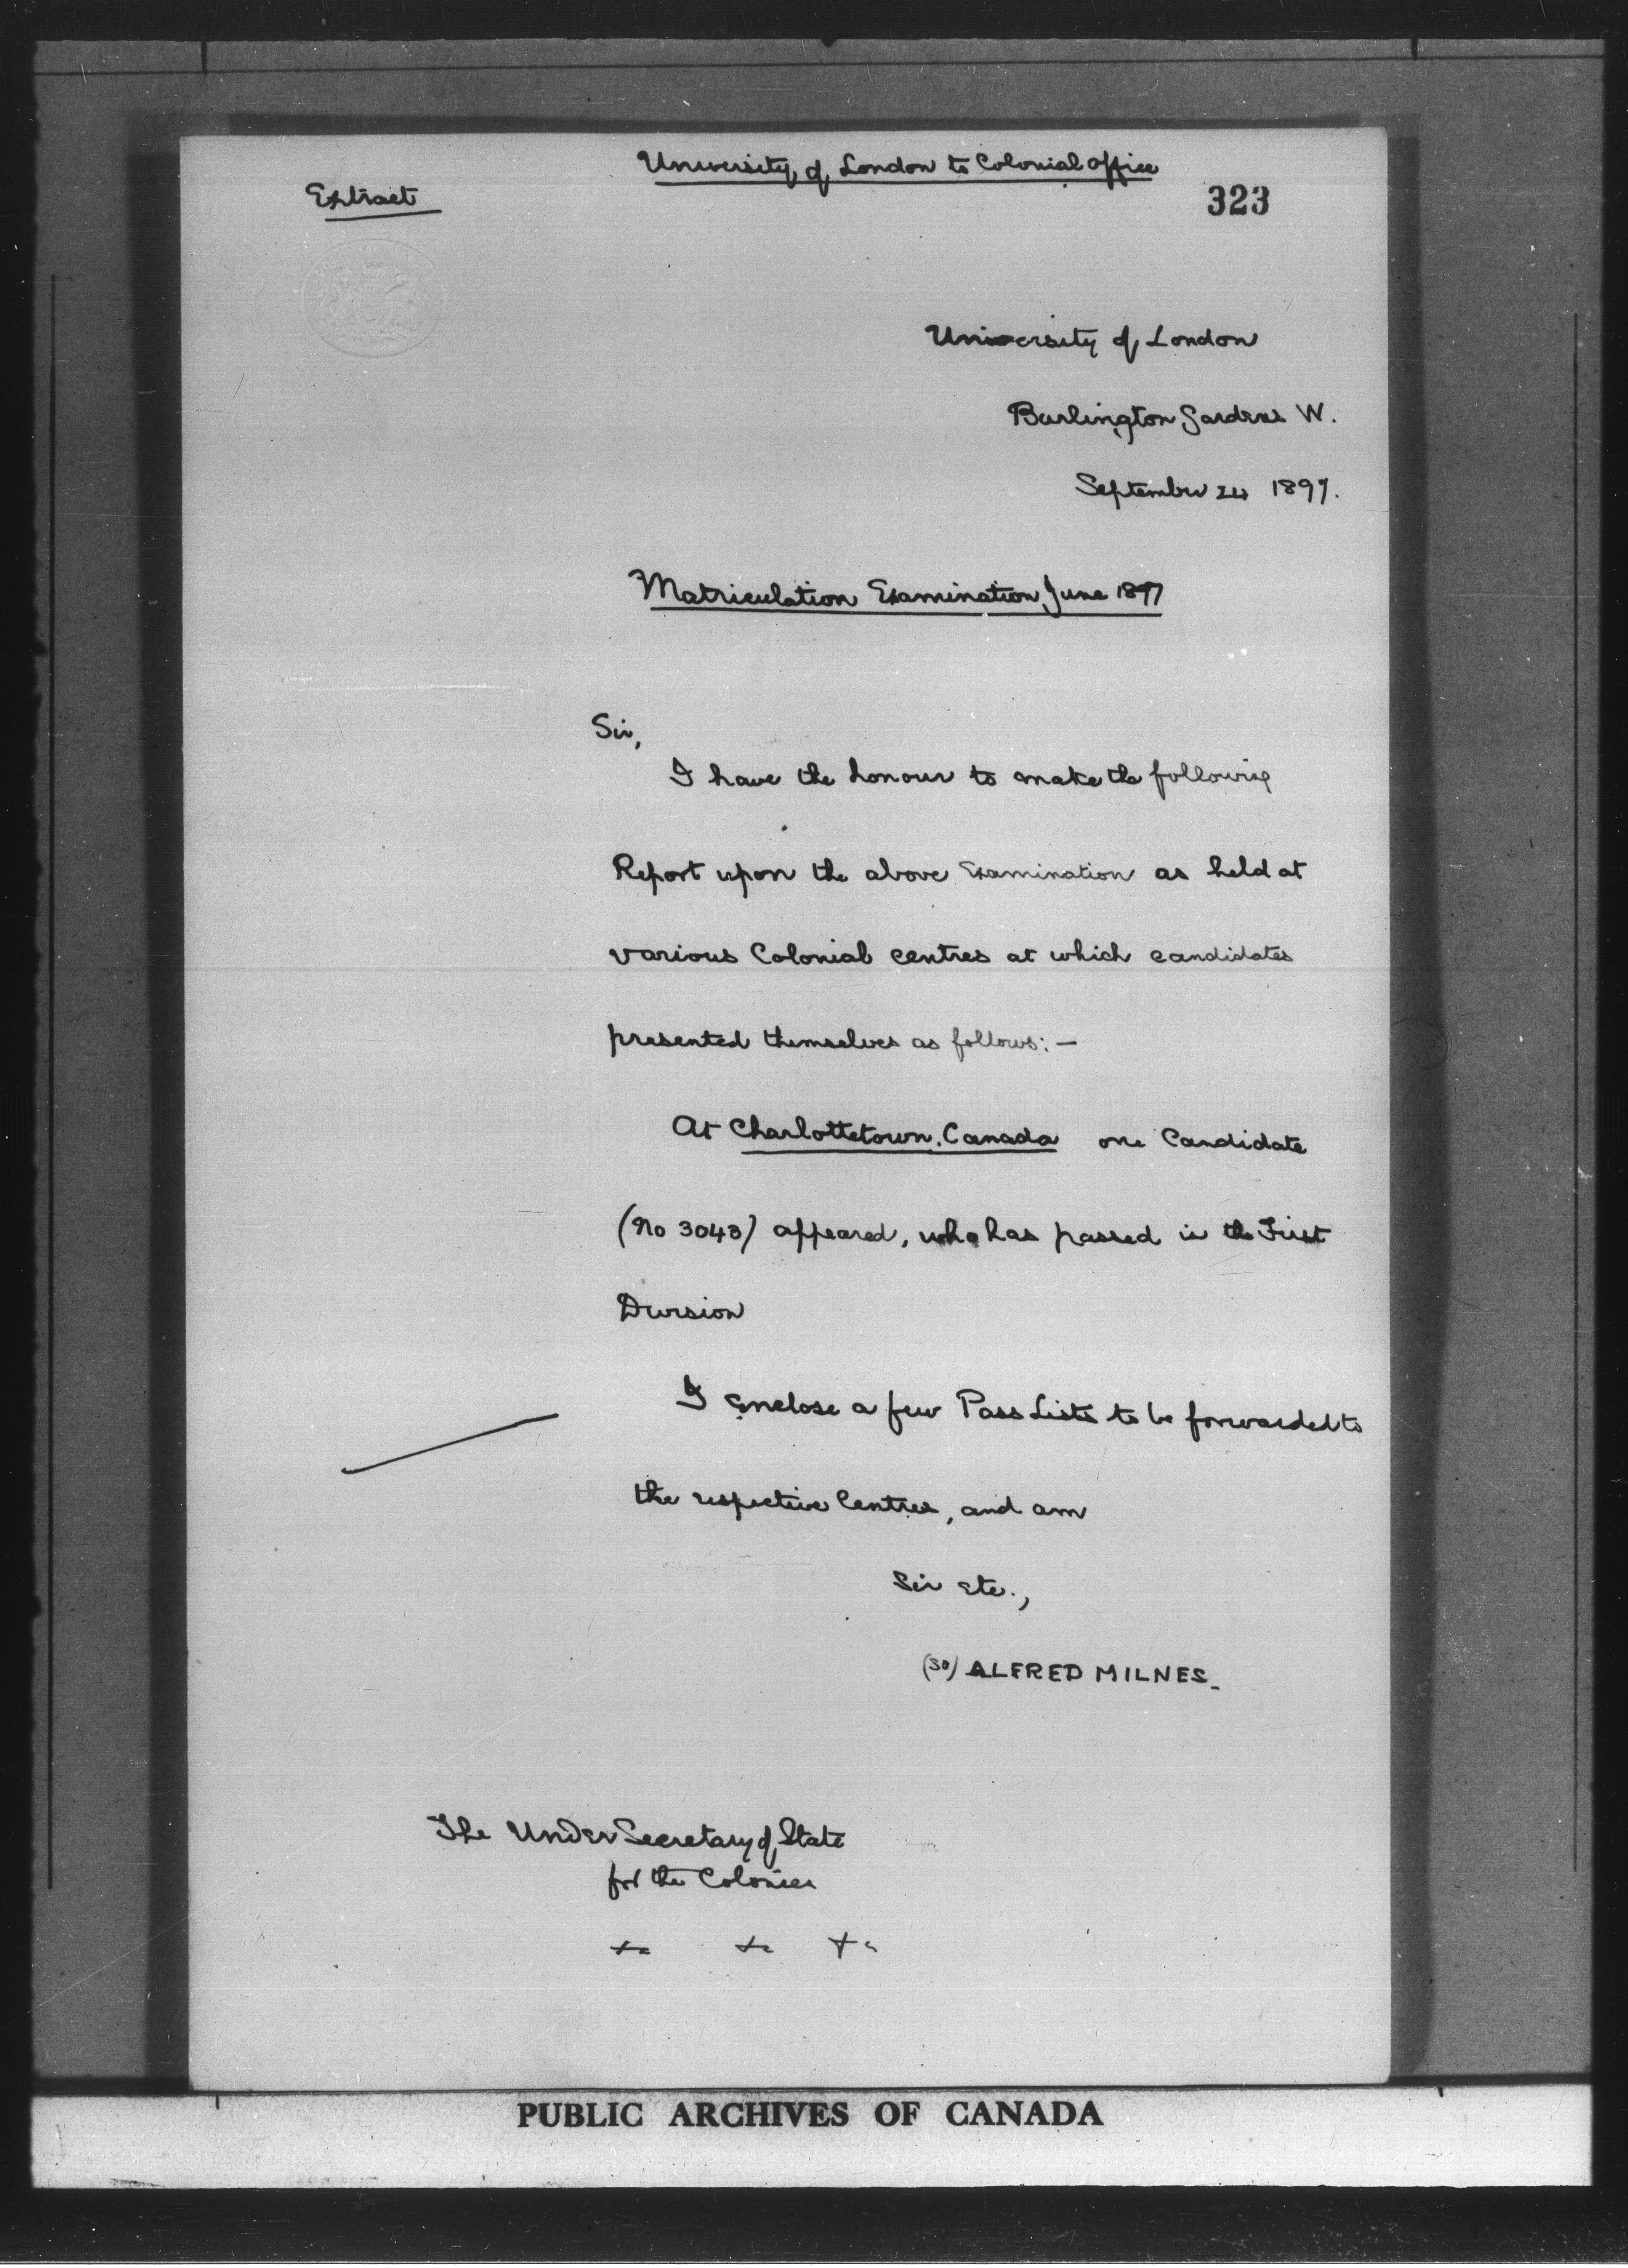 University of London to Colonial Office
Extract
323
University of London
Burlington Gardens W.
September 24 1897.
Matriculation Examination, June 1897
Sir,
I have the honour to make the following
Report upon the above Examination as held at
various Colonial centres at which candidates
presented themselves as follows: —
At Charlottetown, Canada one Candidate
(No 3043) appeared, who has passed in the First
Division
I enclose a few Pass Lists to be forwarded to
the respective Centres, and am
Sir etc.,
(Sd) ALFRED MILNES_
The Under Secretary of State
for the Colonies
PUBLIC ARCHIVES OF CANADA